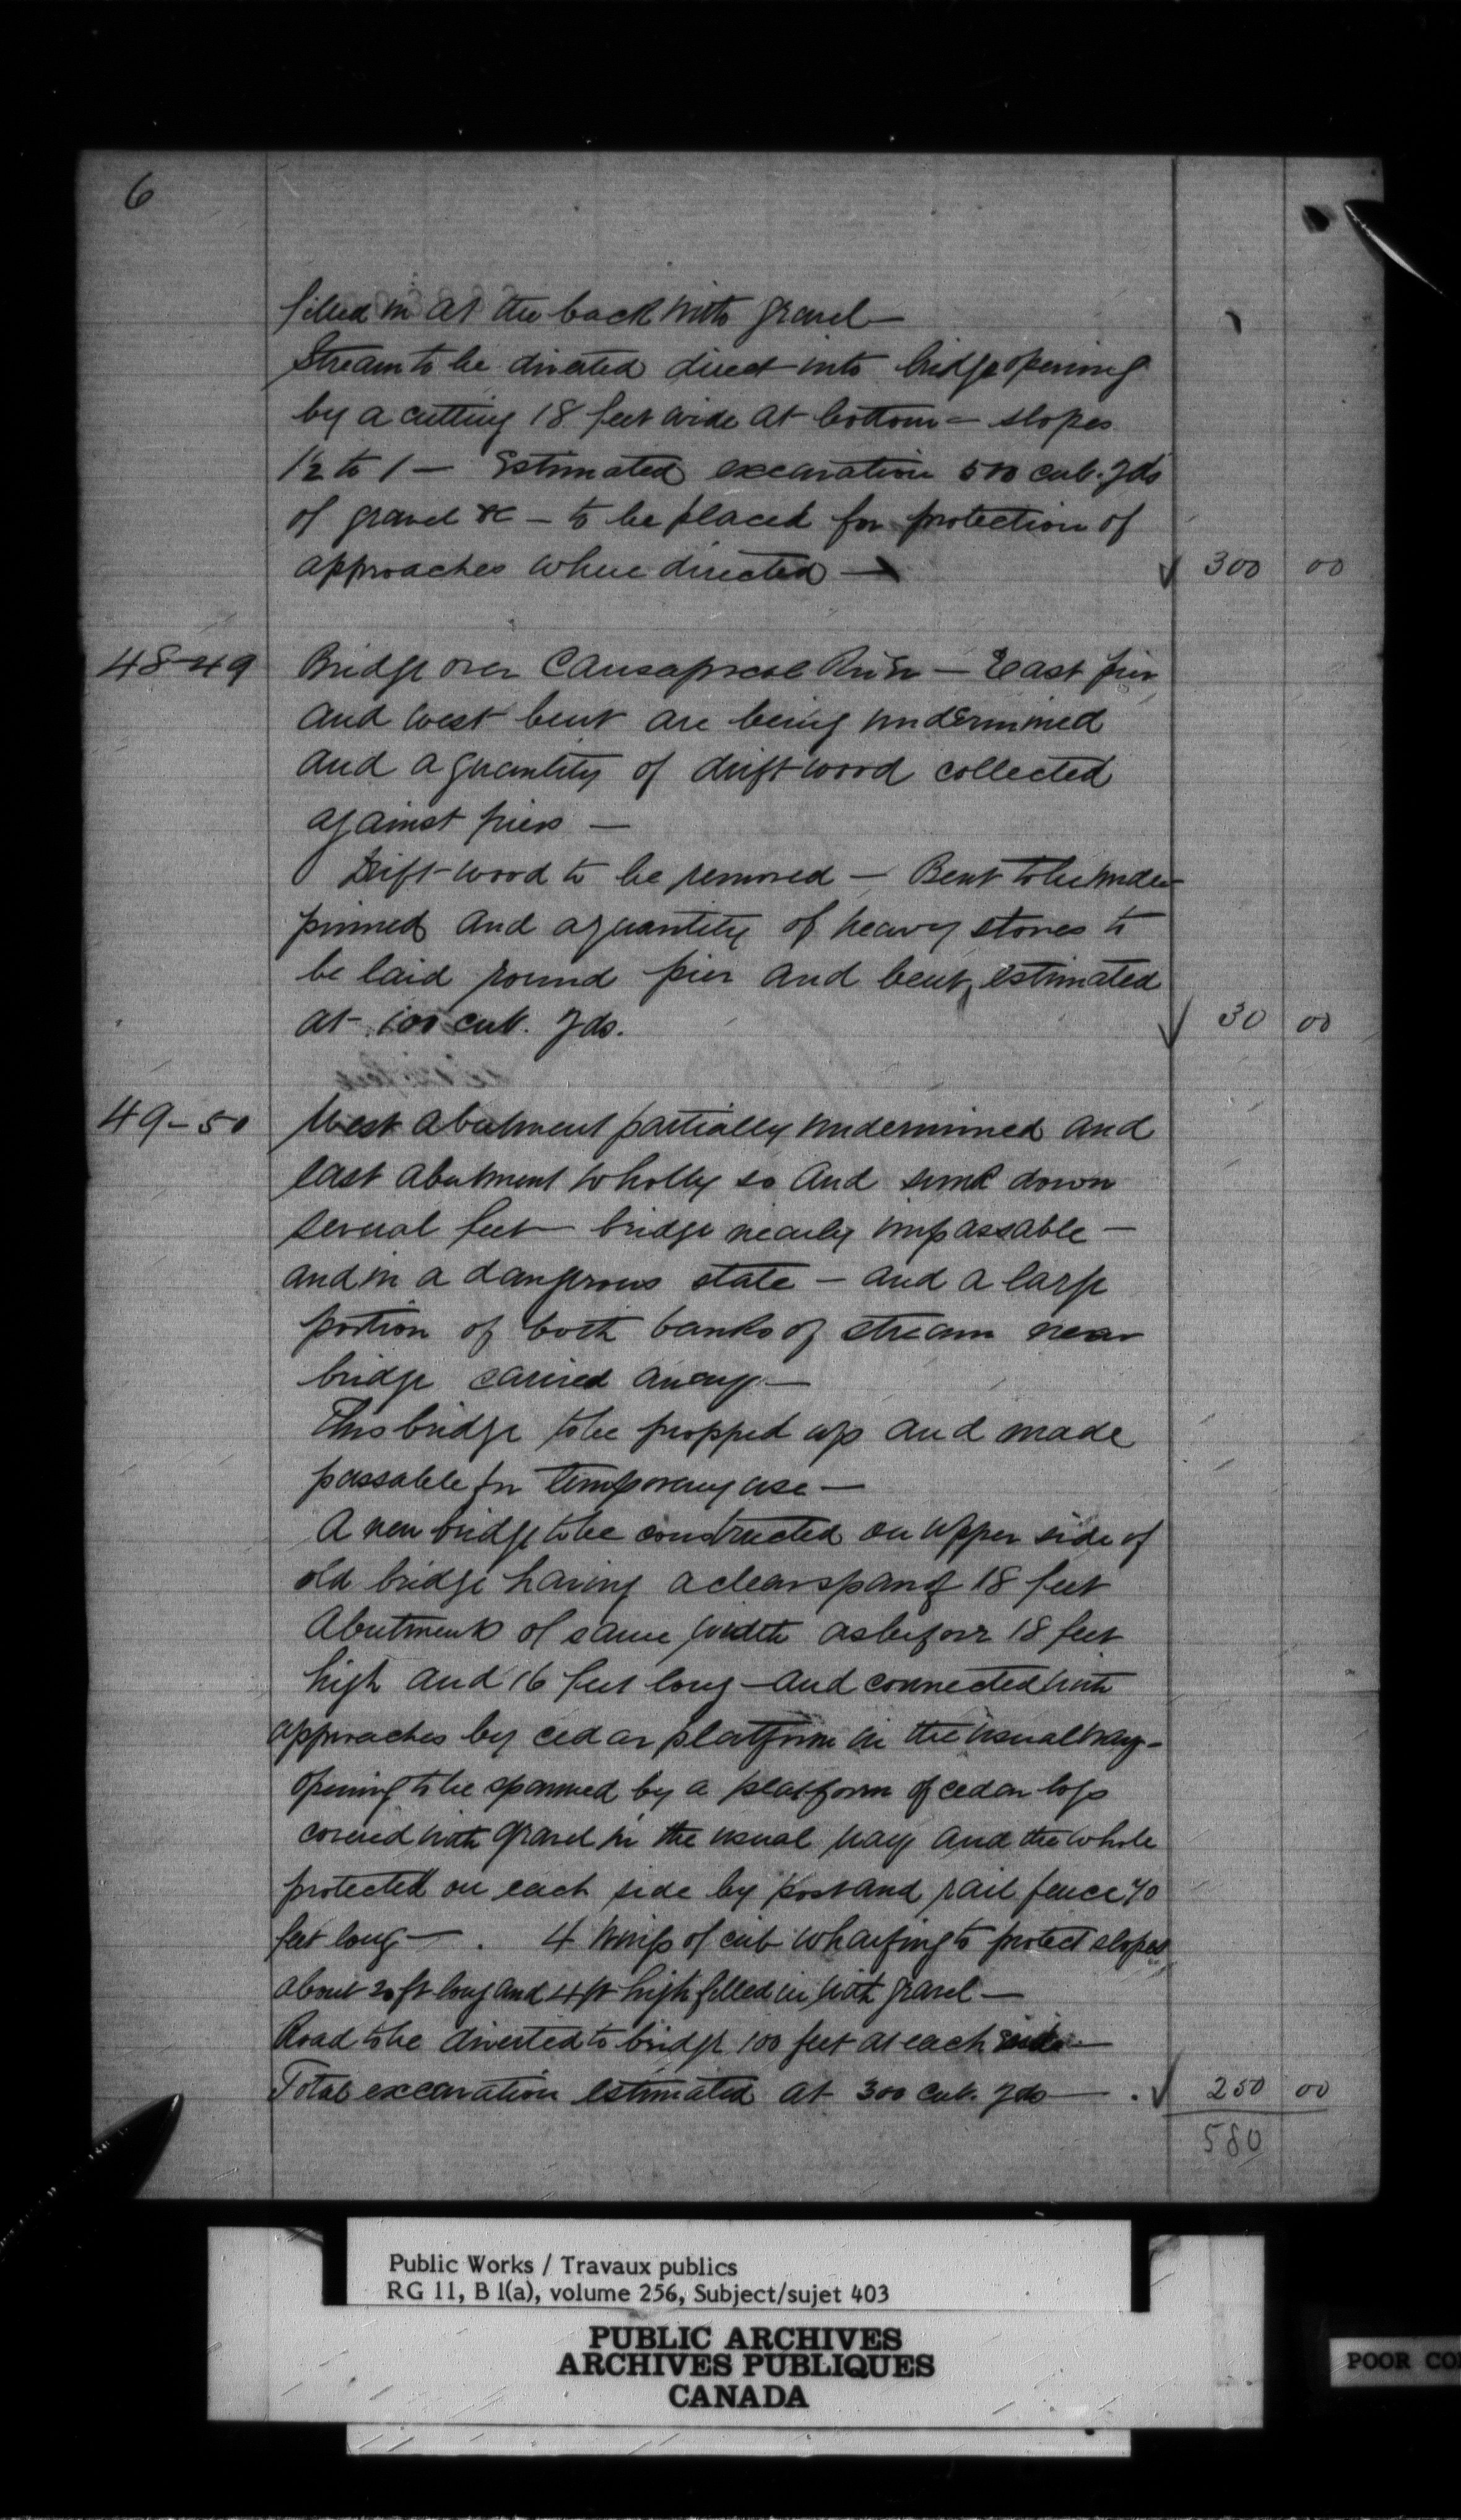 6
filled in at the back with gravel —
Stream to be diverted direct into bridge opening
by a cutting 18 feet wide at bottom — slopes
1½ to 1 — Estimated excavation 500 cub. yds
of gravel &c — to be placed for protection of
approaches where directed — 300 00
48-49 Bridge over Causapscal River — East pier
and west bent are being undermined
and a quantity of drift wood collected
against piers —
Drift-wood to be removed — Bent to be under
pinned and a quantity of heavy stones to
be laid round pier and bent, estimated
at 100 cub. yds. 30 00
49-50 West abutment partially undermined and
east abutment wholly so and sunk down
several feet bridge nearly impassable —
and in a dangerous state — and a large
portion of both banks of stream near
bridge carried away —
This bridge to be propped up and made
passable for temporary use —
A new bridge to be constructed on upper side of
old bridge having a clear span of 18 feet
Abutments of same width as before 18 feet
high and 16 feet long — and connected with
approaches by cedar platform in the usual way —
opening to be spanned by a platform of cedar logs
covered with gravel in the usual way and the whole
protected on each side by post and rail fence 70
feet long — . 4 wings of crib wharfing to protect slopes
about 20 ft long and 4 ft high filled in with gravel —
Road to be diverted to bridge 100 feet at each —
Total excavation estimated at 300 cub. yds — . 250 00
580
Public Works / Travaux publics
RG 11, B 1(a), volume 256, Subject/sujet 403
PUBLIC ARCHIVES
ARCHIVES PUBLIQUES
CANADA
POOR CO